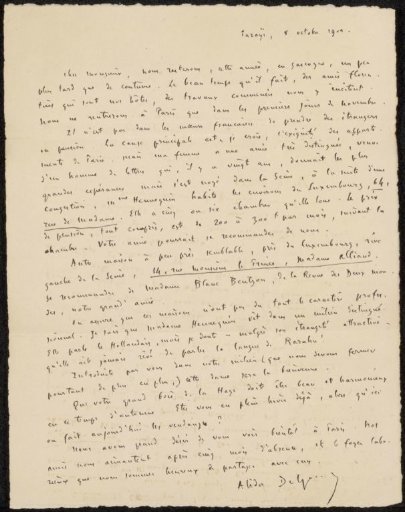 Saraÿs, 8 octobre 19
Cher monsieur, nous resterons, cette année, en Gascogne, un peu
plus tard que de coutume. Le beau temps qu'il fait, des amis
qui sont nos hôtes, des travaux commencés nous y invitent.
Nous ne rentrerons à Paris que dans les premiers jours de novembre.
Il n'est pas dans les mœurs françaises de prendre des étrangers
en pension. La cause principale est, je crois, l'exiguïté des apparte-
ments de Paris. Mais ma femme a une amie très distinguée, veuve
d'un homme de lettres qui, il y a vingt ans, donnait les plus
grandes espérances mais s'est noyé dans la Seine, à la suite d'une
congestion. Mme Hennequin habite les environs du Luxembourg, 64,
rue de Madame. Elle a cinq ou six chambres qu'elle loue. Le prix
de pension, tout compris, est de 200 à 300 f par mois, suivant la
chambre. Votre amie pourrait se recommander de nous.
Autre maison à peu près semblable, près du Luxembourg, rive
gauche de la Seine, 14, rue Monsieur le Prince, Madame Alliaud.
Se recommander de Madame Blanc Bentzon, de la Revue des Deux Mon-
des, notre grand' amie.
Ces maisons n'ont pas du tout le caractère profes-
sionnel. Je sais que Madame Hennequin vit dans un milieu distingué.
Elle parle le Hollandais, mais je doute malgré son étrangeté attractive
qu'elle ait jamais rêvé de parler la langue de
Introduite par vous dans notre milieu (que nous devons fermer
pourtant de plus en plus,) cette dame sera la bienvenue.
Que votre grand bois de la Haye doit être beau et harmonieux
en ce temps d'automne. Etes vous en plein hiver déjà, alors qu'ici
on fait aujourd'hui les vendanges ?
Nous avons grand désir de vous voir bientôt à Paris. Nos
amis nous aimantent après cinq mois d'absence, et le foyer labo-
rieux que nous sommes heureux de partager avec eux.